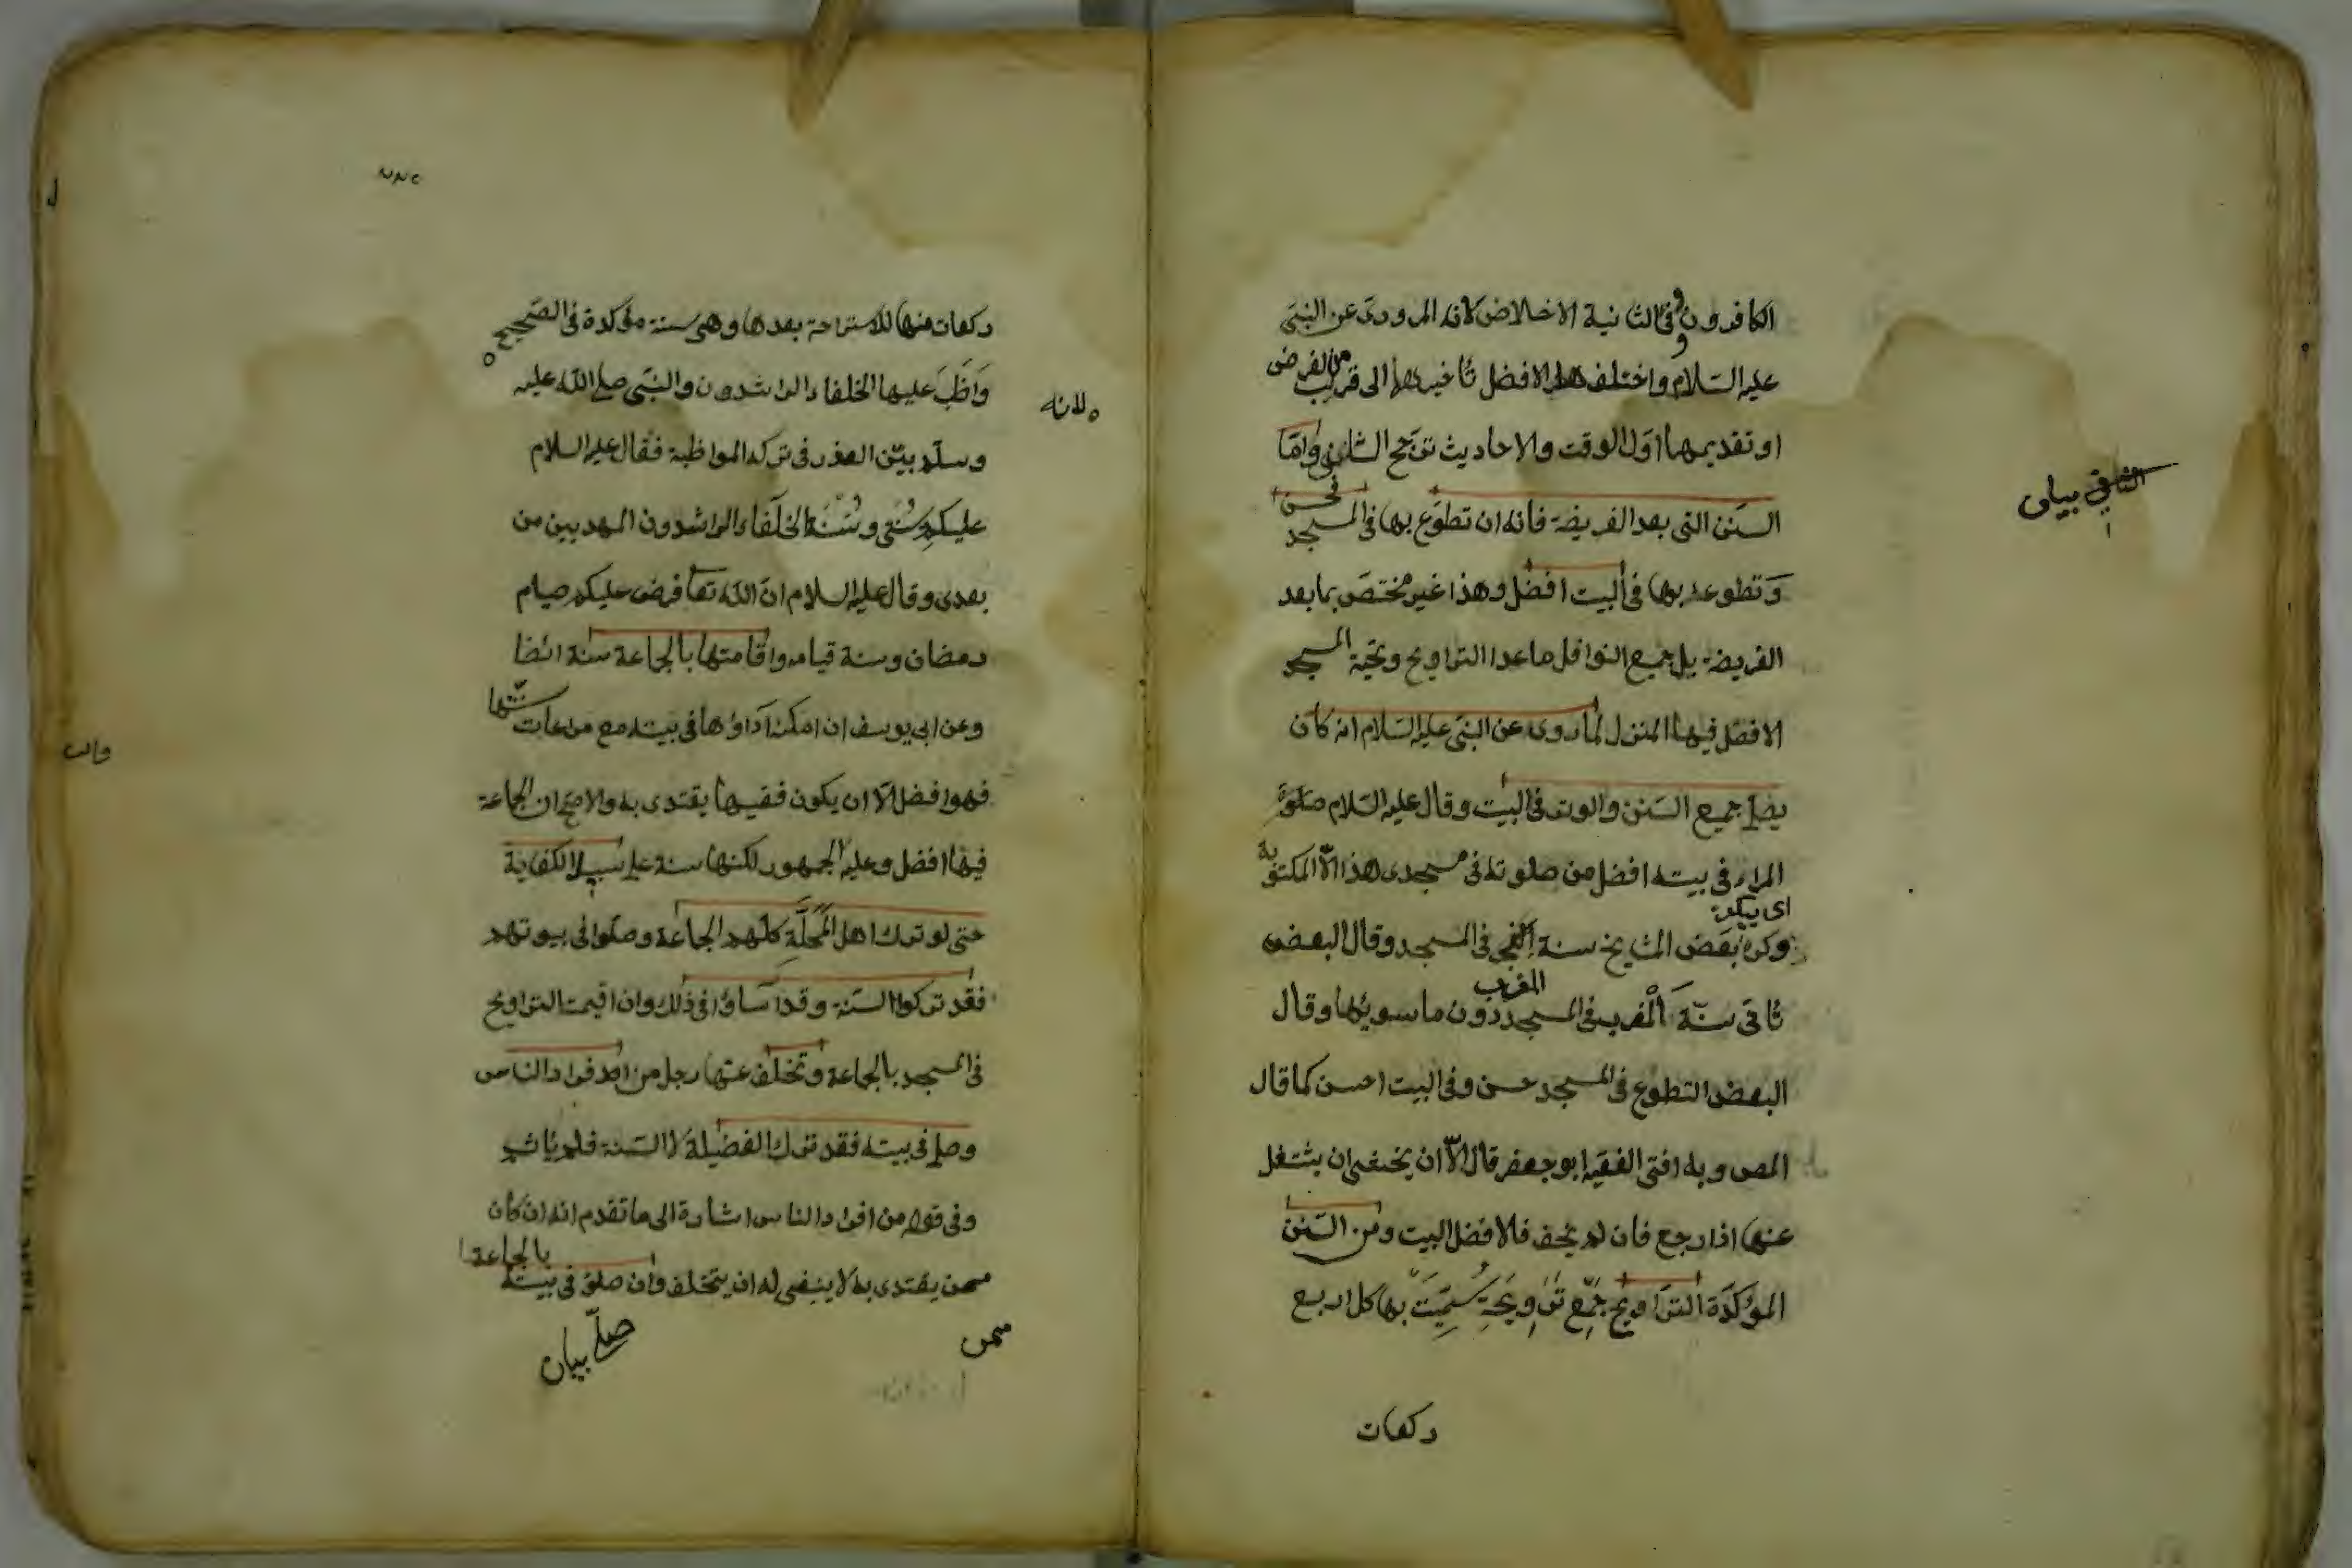 الكافرون وفى الثانية الاخلاص لانه المروى عن النبى
عليه السلام واختلف هل الافضل تأخيرهما الى قريب من الفرض
او تقديمهما اول الوقت والاحاديث ترجح الثانى واما
السنن التى بعد الفريضة فانه ان تطوع بها فى المسجد فحسن
وتطوعه بها فى البيت افضل وهذا غير مختص بما بعد
الفريضة بل جميع النوافل ما عدا التراويح وتحية المسجد
الافضل فيها المنزل لما روى عن النبى عليه السلام انه كان
يصلى جميع السنن والوتر فى البيت وقال عليه السلام صلوة
المراء فى بيته افضل من صلوته فى مسجدى هذا الا المكتوبة
اى يكره
وكره بعض المشايخ سنة الفجر فى المسجد وقال البعض
المغرب
تأتى سنة المغرب فى المسجد دون ما سويها وقال
البعض التطوع فى المسجد حسن وفى البيت احسن كما قال
المص وبه افتى الفقيه ابو جعفر قال الا ان يخشى ان يشتغل
عنها اذا رجع فان لم يخف فالافضل البيت ومن السنن
المؤكدة التراويح جمع ترويحة سميت بها كل اربع
ركعات
الثانى بيان
ركعات منها للاستراحة بعدها وهى سنة مؤكدة فى الصحيح
لانه
واظب عليها الخلفاء الراشدون والنبى صلى الله عليه
وسلم بين العذر فى تركه المواظبة فقال عليه السلام
عليكم بسنتى وسنة الخلفاء الراشدون المهديين من
بعدى وقال عليه السلام ان الله تعا فرض عليكم صيام
رمضان وسنة قيامه واقامتها بالجماعة سنة ائضا
وعن ابى يوسف ان امكنه آداؤها فى بيته مع مراعات سننها
فهو افضل الا ان يكون فقيها يقتدى به والاصح ان الجماعة
فيها افضل وعليه الجمهور لكنها سنة على سبيل الكفاية
حتى لو ترك اهل المحلة كلهم الجماعة وصلوا فى بيوتهم
فقد تركوا السنة وقد آساؤا فى ذلك وان اقيمت التراويح
فى المسجد بالجماعة وتخلف عنها رجل من افراد الناس
وصلى فى بيته فقد ترك الفضيلة لا السنة فلم يأثم
وفى قوله من افراد الناس اشارة الى ما تقدم انه ان كان
ممن يقتدى به لا ينبغى له ان يتخلف وان صلى فى بيته بالجماعة
ممن
صلى بيان